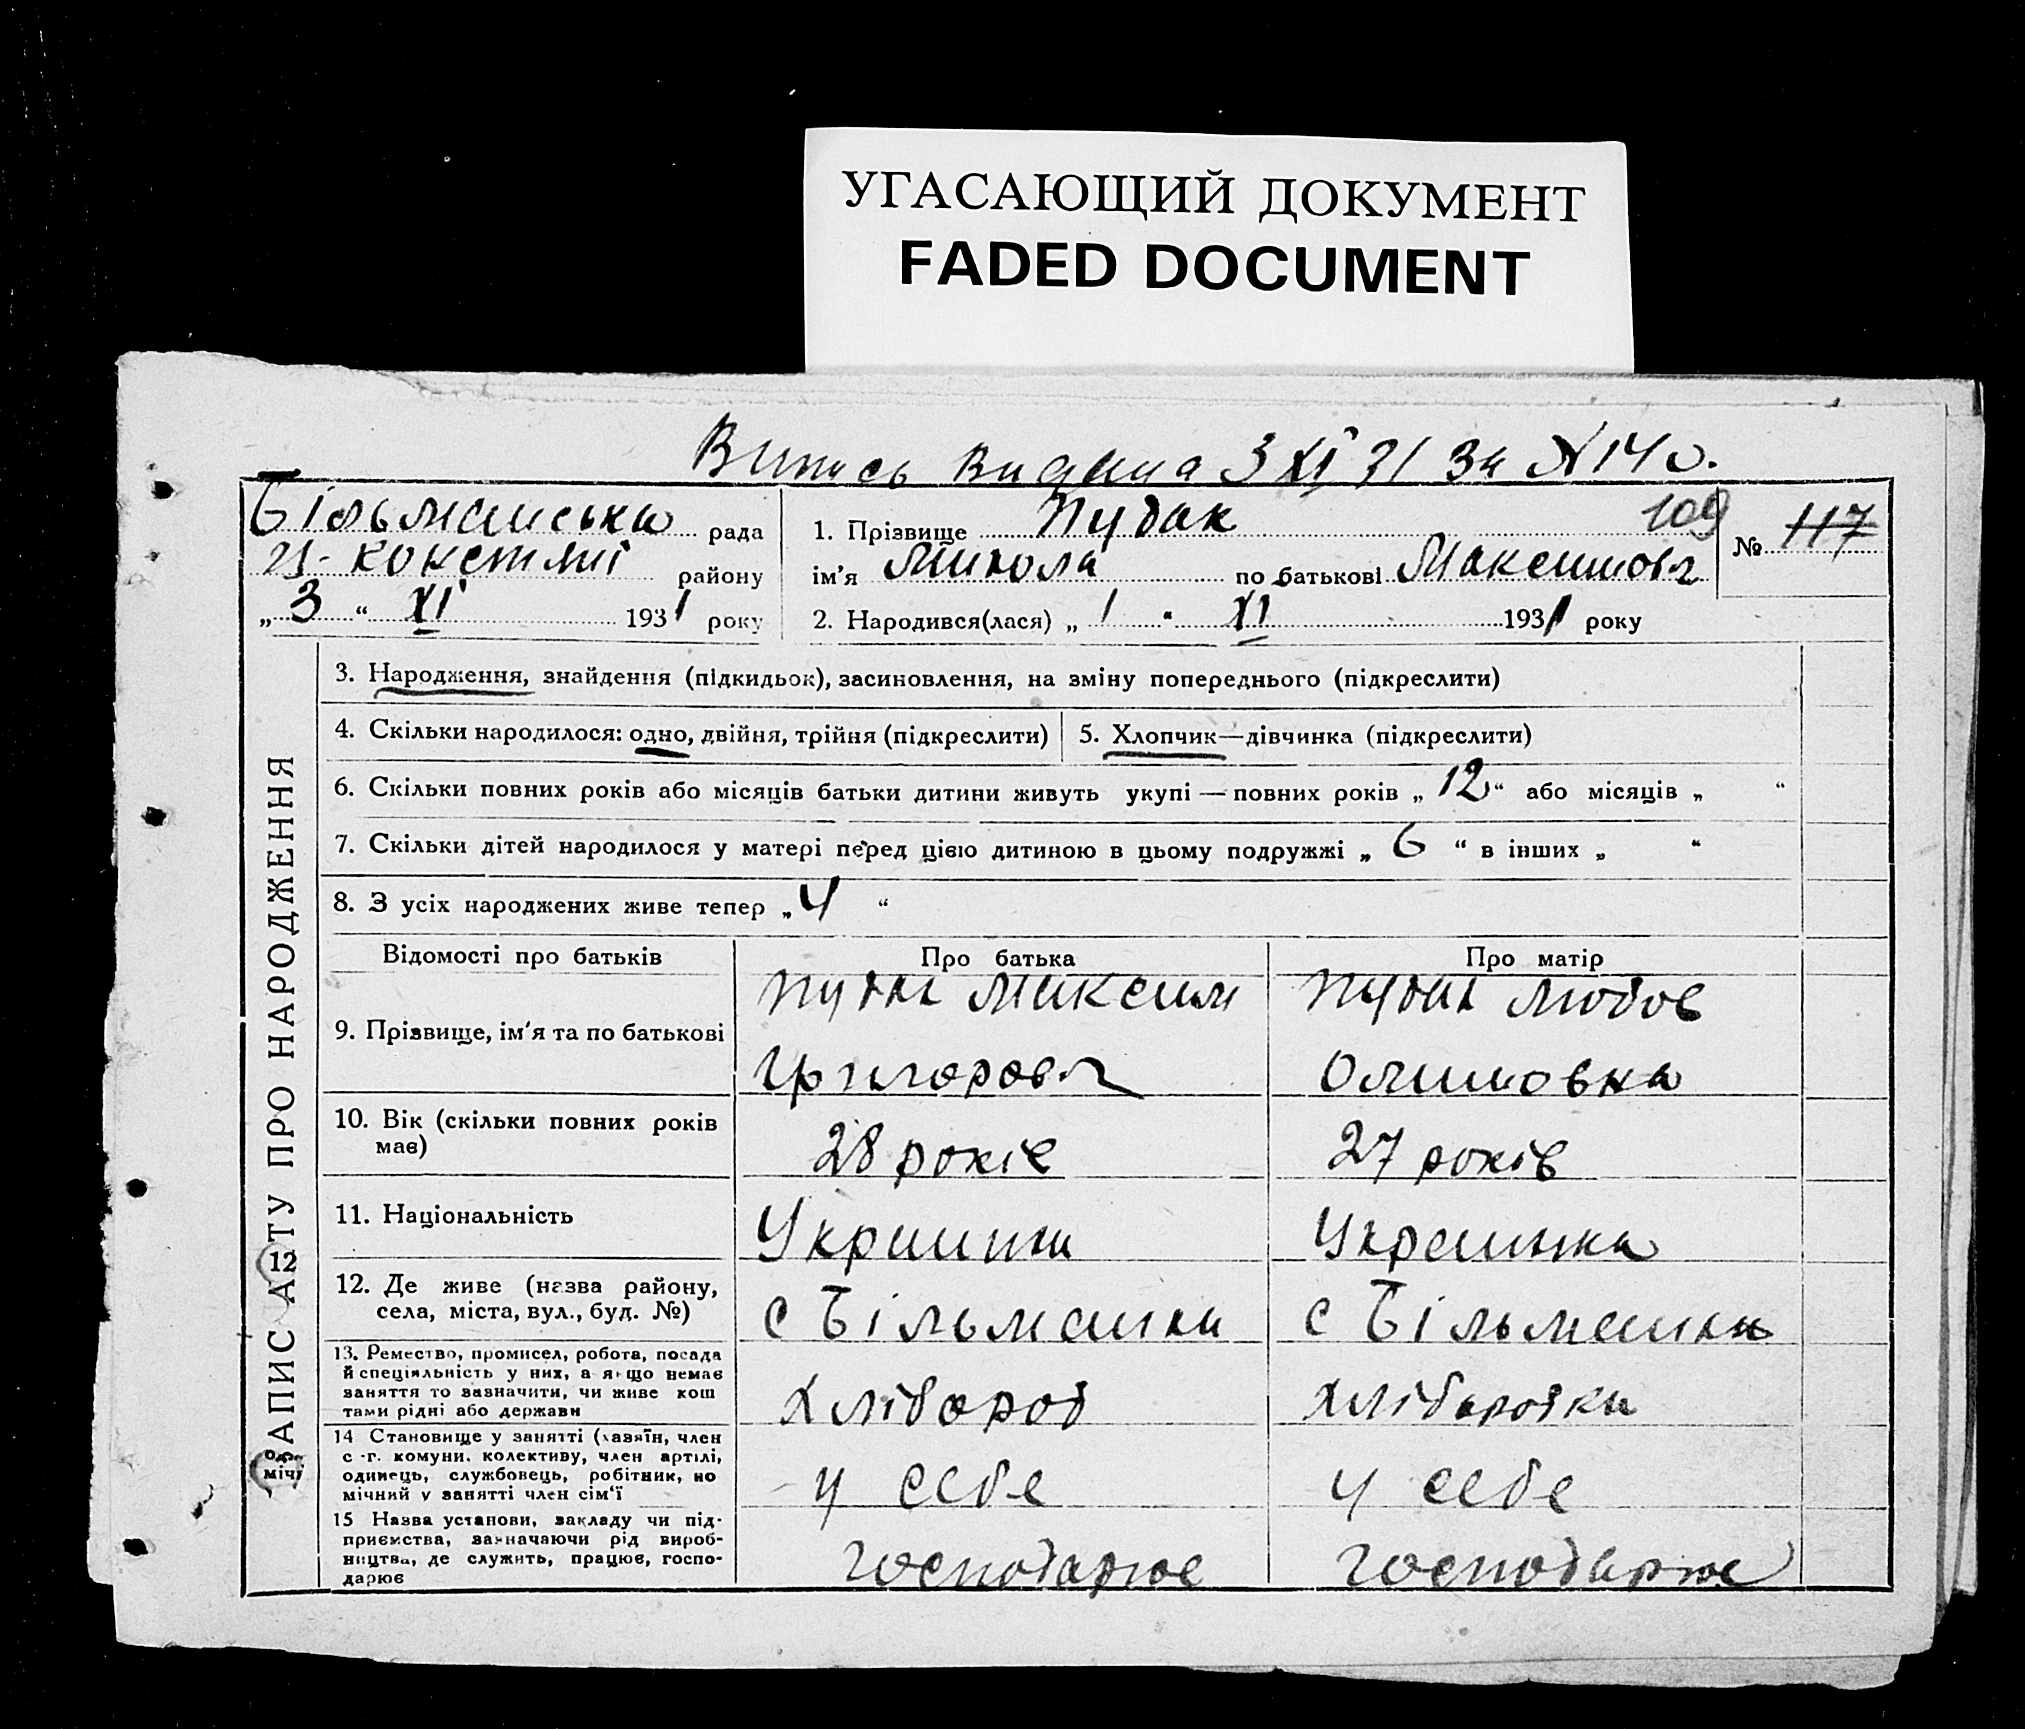 УГАСАЮЩИЙ ДОКУМЕНТ
FADED DOCUMENT
Випись видана 3 XI 31 за № 140.
Більманська рада
район
у
„ 3 “ XI 1931 року
1. Прізвище Пубак 109
ім’я Микола по батькові Максимович
2. Народився(лася) „ 1 “ XI 1931 року
№ 117
ЗАПИС АКТУ ПРО НАРОДЖЕННЯ
12
3. Народження, знайдення (підкидьок), засиновлення, на зміну попереднього (підкреслити)
4. Скільки народилося: одно, двійня, трійня (підкреслити)
5. Хлопчик—дівчинка (підкреслити)
6. Скільки повних років або місяців батьки дитини живуть укупі — повних років „ 12 “ або місяців „ “
7. Скільки дітей народилося у матері перед цією дитиною в цьому подружжі „ 6 “ в інших „ “
8. З усіх народжених живе тепер „ 4 “
Відомості про батьків
Про батька
Про матір
9. Прізвище, ім’я та по батькові
Пубак Максим
Григорович
Пубак Любов
10. Вік (скільки повних років
має)
28 років
27 років
11. Національність
Українка
12. Де живе (назва району,
села, міста, вул., буд. №)
с Більманка
с Більманка
13. Ремество, промисел, робота, посада
й спеціяльність у них, а якщо немає
заняття то зазначити, чи живе кош
тами рідні або держави
Хлібороб
Хліборобка
14 Становище у занятті (хазяїн, член
с -г. комуни. колективу, член артілі,
одинець, службовець, робітник, по
мічний у занятті член сім’ї
у себе
у себе
15 Назва установи, закладу чи під-
приємства, зазначаючи рід вироб-
ництва, де служить, працює, госпо-
дарює
господарює
господарює